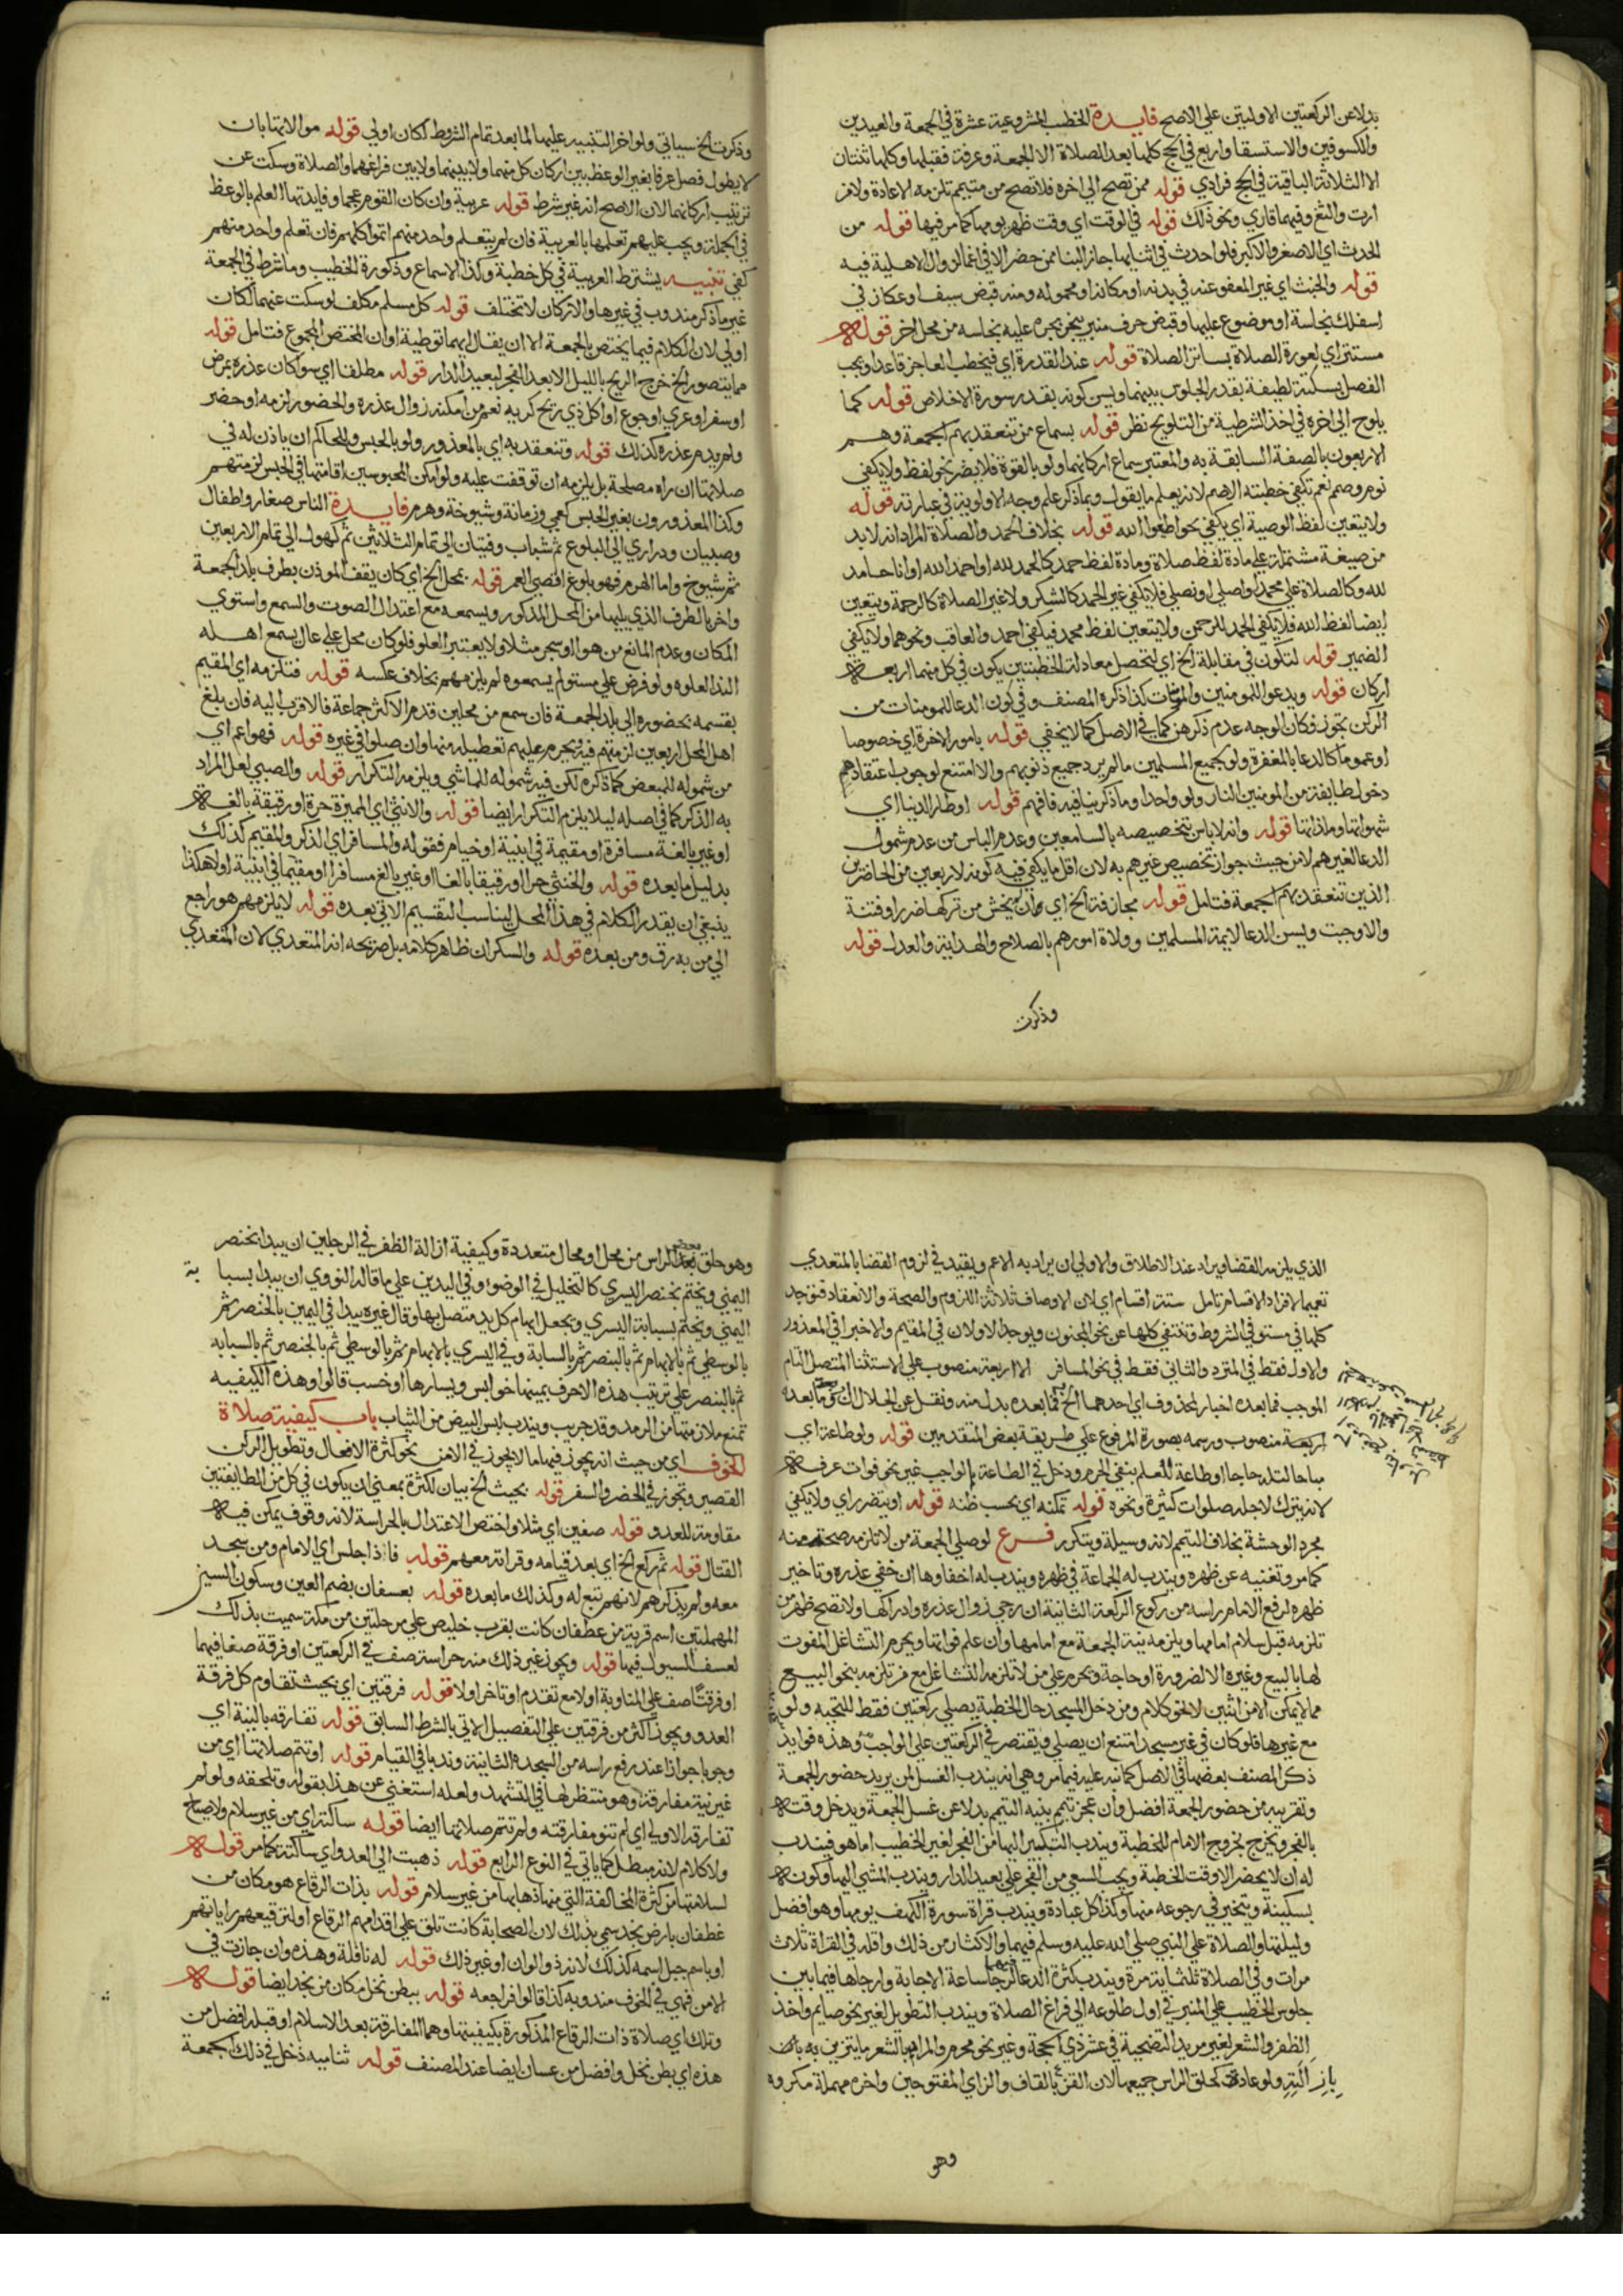 بدلا عن الركعتين الاوليتين علي الاصح فايدة الخطب المشروعية عشرة في الجمعة والعيدين
والكسوفين والاستسقا واربع في الحج كلها بعد الصلاة الا الجمعة وعرفة فقبلها وكلها ثنتان
الا الثلاثة الباقية في الحج فرادي قوله ممن تصح الي اخره فلا تصح من متيمم تلزمه الاعادة ولا من
ارت والثغ وفيهما قاري ونحو ذلك قوله في الوقت اي وقت ظهر يومها كما مر فيها قوله من
الحدث اي الاصغر والاكبر فلو احدث في اثنايها جاز البنا ممن حضر الا في اغما لزوال الاهلية فيه
قوله والخبث اي غير المعفو عنه في بدنه او مكانه او محموله ومنه قبض سيف او عكاز في
اسفلك بنجاسة او موضوع عليها وقبض حرف منبر ينجر بجره عليه نجاسه من محل اخر قوله
مستتر اي لعورة الصلاة بساتر الصلاة قوله عند القدرة اي فيخطب العاجز قاعدا ويجب
الفصل بسكتة لطيفة بقدر الجلوس بينهما ويسن كونه بقدر سورة الاخلاص قوله كما
يلوح الي اخره في اخذ الشرطية من التلويح نظر قوله بسماع من تنعقد بهم الجمعة وهم
الاربعون بالصفة السابقة به والمعتبر سماع اركانها ولو بالقوة فلا يضر نحو لفظ ولا يكفي
نوم وصم نعم تكفي خطبته الاصم لانه يعلم ما يقول وبما ذكر علم وجه الاولوية في عبارته قوله
ولا يتعين لفظ الوصية اي يكفي نحو اطيعوا الله قوله بخلاف الحمد والصلاة المراد انه لا بد
من صيغة مشتملة علي مادة لفظ صلاة ومادة لفظ حمد كالحمد لله او احمد الله او انا حامد
لله وكالصلاة علي محمد او اصلي او نصلي فلا يكفي غير الحمد كالشكر ولا غير الصلاة كالرحمة ويتعين
ايضا لفظ الله فلا يكفي الحمد للرحمن ولا يتعين لفظ محمد فيكفي احمد والعاقب ونحوهما ولا يكفي
الضمير قوله لتكون في مقابلة الخ اي لتحصل معادلة الخطبتين بكون في كل منهما اربعة
اركان قوله ويدعو للمومنين والمومنات كذا ذكره المصنف وفي كون الدعا للمومنات من
الركن تجوز فكان الوجه عدم ذكرهن كما في الاصل كما لا يخفي قوله بامور الاخرة اي خصوصا
او عموما كالدعا بالمغفرة ولو لجميع المسلمين ما لم يرد جميع ذنوبهم والا امتنع لوجوب اعتقادهم
دخول طايفة من المومنين النار ولو واحدا وما ذكر ينافيه فافهم قوله اوطار الدنيا اي
شهواتها وملذاتها قوله وانه لا باس بتخصيصه بالسامعين وعدم الباس من عدم شمول
الدعا لغيرهم لا من حيث جواز تخصيص غيرهم به لان اقل ما يكفي فيه كونه لاربعين من الحاضرين
الذين تنعقد بهم الجمعة فتامل قوله مجازفة الخ اي وان لم يخش من تركها ضررا وفتنة
والا وجبت ويسن الدعا لايمة المسلمين وولاة امورهم بالصلاح والهداية والعدل قوله
وذكرت
وذكرت الخ سياتي ولو اخر التنبيه عليهما لما بعد تمام الشروط لكان اولي قوله موالاتها بان
لا يطول فصل عرفا بغير الوعظ بين اركان كل منهما ولا بينهما ولا بين فراغهما والصلاة وسكت عن
ترتيب اركانهما لان الاصح انه غير شرط قوله عربية وان كان القوم عجما وفايدتها العلم بالوعظ
في الجملة ويجب عليهم تعلمها بالعربية فان لم يتعلم واحد منهم اثموا كلهم فان تعلم واحد منهم
كفي تنبيه يشترط العربية في كل خطبة وكذا الاسماع وذكورة الخطيب وما شرط في الجمعة
غير ما ذكر مندوب في غيرها والاركان لا تختلف قوله كل مسلم مكلف لو سكت عنهما لكان
اولي لان الكلام فيما يختص بالجمعة الا ان يقال انهما توطية او ان المختص المجموع فتامل قوله
مما يتصور الخ خرج الريح بالليل الا بعد الفجر لبعيد الدار قوله مطلقا اي سوا كان عذره بمرض
او سفر او عري او جوع او اكل ذي ريح كريه نعم من امكنه زوال عذره والحضور لزمه او حضر
ولم يدم عذره كذلك قوله وتنعقد به اي بالمعذور ولو بالحبس وللحاكم ان ياذن له في
صلاتها ان راه مصلحة بل يلزمه ان توقفت عليه ولو امكن المحبوسين اقامتها في الحبس لزمتهم
وكذا المعذورون بغير الحبس كعمي وزمانة وشيوخة وهرم فايدة الناس صغار واطفال
وصبيان ودراري الي البلوغ ثم شباب وفتيان الي تمام الثلاثين ثم كهول الي تمام الاربعين
ثم شيوخ واما الهرم فهو بلوغ اقصي العمر قوله بمحل الخ اي كان يقف الموذن بطرف بلد الجمعة
واخر بالطرف الذي يليها من المحل المذكور ويسمعه مع اعتدال الصوت والسمع واستوي
المكان وعدم المانع من هوا او سجر مثلا ولا يعتبر العلو فلو كان محل علي عال يسمع اهله
الندا لعلوه ولو فرض علي مستو لم يسمعوه لم يلزمهم بخلاف عكسه قوله فتلزمه اي المقيم
بقسمه بحضوره الي بلد الجمعة فان سمع من محلين قدم الاكثر جماعة فالاقرب اليه فان بلغ
اهل المحل اربعين لزمتهم فيه ويحرم عليهم تعطيله منها وان صلوا في غيره قوله فهو اعم اي
من شموله للمبعض كما ذكره لكن فيه شموله للماشي ويلزمه التكرار قوله والصبي لعل المراد
به الذكر كما في اصله ليلا يلزم التكرار ايضا قوله والانثي اي المميزة حرة او رقيقة بالغة
او غير بالغة مسافرة او مقيمة في ابنية او خيام فقوله والمسافر اي الذكر والمقيم كذلك
بدليل ما بعده قوله والخنثي حرا او رقيقا بالغا او غير بالغ مسافرا او مقيما في ابنية اولا هكذا
ينبغي ان يقدر الكلام في هذا المحل ليناسب التقسيم الاتي بعده قوله لا يلزمهم هو راجع
الي من به رق ومن بعده قوله والسكران ظاهر كلامه بل صريحه انه المتعدي لان المتعدي
الذي يلزمه القضا ويراد عند الاطلاق والاولي ان يراد به الاعم ويقيد في لزوم القضا بالمتعدي
تعميما لافراد الاقسام تامل ستة اقسام اي لان الاوصاف ثلاثة اللزوم والصحة والانعقاد فتوجد
كلها في مستوفي الشروط وتنتفي كلها عن نحو المجنون ويوجد الاولان في المقيم والاخير في المعذور
والاول فقط في المرتد والثاني فقط في نحو المسافر الا اربعة منصوب علي الاستثنا المتصل التام
الموجب فما بعده اخبار لمحذوف اي احدهما الخ فما بعده بدل منه ونقل عن الجلال ان وما بعده
اربعة منصوب ورسمه بصورة المرفوع علي طريقة بعض المتقدمين قوله ولو طاعة اي
مباحا لتلد حاجا او طاعة للعلم بنفي الحرم ودخل في الطاعة الواجب غير نحو فوات عرفة
لانه يترك لاجله صلوات كثيرة ونحوه قوله تمكنه اي بحسب ظنه قوله او يتضرر اي ولا يكفي
مجرد الوحشة بخلاف التيمم لانه وسيلة ويتكرر فرع لو صلي الجمعة من لا تلزمه صحت منه
كما مر وتغنيه عن ظهره ويندب له الجماعة في ظهره ويندب له اخفاوها ان خفي عذره وتاخير
ظهره لرفع الامام راسه من ركوع الركعة الثانية ان رجي زوال عذره وادراكها ولا تصح ظهر من
تلزمه قبل سلام امامها ويلزمه نية الجمعة مع امامها وان علم فواتها ويحرم التشاغل المفوت
لها بالبيع وغيره الا لضرورة او حاجة ويحرم علي من لا تلزمه التشاغل مع من تلزمه بنحو البيع
مما لا يمكن الا من اثنين لا نحو كلام ومن دخل المسجد حال الخطبة يصلي ركعتين فقط للتحية ولو
مع غيرها فلو كان في غير مسجد امتنع ان يصلي ويقتصر في الركعتين علي الواجب وهذه فوايد
ذكر المصنف بعضها في الاصل كما نبه عليه فيما مر وهي انه يندب الغسل لمن يريد حضور الجمعة
وتقريبه من حضور الجمعة افضل وان عجز تيمم بنية التيمم بدلا عن غسل الجمعة ويدخل وقته
بالفجر ويخرج بخروج الامام للخطبة ويندب التبكير اليها من الفجر لغير الخطيب اما هو فيندب
له ان لا يحضر الا وقت الخطبة ويجب السعي من الفجر علي بعيد الدار ويندب المشي اليها وكونه
بسكينة ويتخير في رجوعه منها وكذا كل عبادة ويندب قراة سورة الكهف يومها وهو افضل
وليلتها والصلاة علي النبي صلي الله عليه وسلم فيهما والاكثار من ذلك واقله في القراة ثلاث
مرات وفي الصلاة ثلثماية مرة ويندب كثرة الدعا لرجا ساعة الاجابة وارجاها فيما بين
جلوس الخطيب علي المنبر في اول طلوعه الي فراغ الصلاة ويندب التطويل لغير نحو صايم واخذ
الظفر والشعر لغير مريد التضحية في عشر ذي الحجة وغير نحو محرم والمراد بالشعر ما يتزين به بان
ولو عادة كحلق الراس جميعها لان القزع بالقاف والزاي المفتوحين واخره مهملة مكروه
وهو
وهو حلق بعض الراس من محل او محال متعددة وكيفية ازالة الظفر في الرجلين ان يبدا بخنصر
اليمني ويختم بخنصر اليسري كالتخليل في الوضو وفي اليدين علي ما قاله النووي ان يبدا بسبابة
اليمني ويختم بسبابة اليسري ويجعل ابهام كل يد متصل بها وقال غيره يبدا في اليمين بالخنصر ثم
بالوسطي ثم بالابهام ثم بالبنصر ثم بالسبابة وفي اليسري بالابهام ثم بالوسطي ثم بالخنصر ثم بالسبابه
ثم بالبنصر علي ترتيب هذه الاحرف بيمينها خوابس ويسارها اوخسب قالوا وهذه الكيفيه
تمنع ملازمتها من الرمد وقد جرب ويندب لبس البيض من الثياب باب كيفية صلاة
الخوف اي من حيث انه يجوز فيها ما لا يجوز في الامن نحو كثرة الافعال وتطويل الركن
القصير وتجوز في الحضر والسفر قوله بحيث الخ بيان لكثرة بمعني ان يكون في كل من الطايفتين
مقاومة للعدو قوله صفين اي مثلا واختص الاعتدال بالحراسة لانه وقوف يمكن فيه
القتال قوله ثم ركع الخ اي بعد قيامه وقراته معهم قوله فاذا جلس اي الامام ومن سجد
معه ولم يذكرهم لانهم تبع له وكذلك ما بعده قوله بعسفان بضم العين وسكون السين
المهملتين اسم قرية من غطفان كانت بقرب خليص علي مرحلتين من مكة سميت بذلك
لعسف السيول فيها قوله ويجوز غير ذلك منه حراسة صف في الركعتين او فرقة صفا فيهما
او فرقتا صف علي المناوبة اولا مع تقدم او تاخر اولا قوله فرقتين اي بحيث تقاوم كل فرقة
العدو ويجوز اكثر من فرقتين علي التفصيل الاتي بالشرط السابق قوله تفارقه بالنية اي
وجوبا جوازا عند رفع راسه من السجدة الثانية وندبا في القيام قوله او تتم صلاتها اي من
غير نية مفارقة وهو منتظر لها في التشهد ولعله استغني عن هذا بقوله وتلحقه ولو لم
تفارقه الاولي اي لم تنو مفارقته ولم تتم صلاتها ايضا قوله ساكتة اي من غير سلام ولا صياح
ولا كلام لانه مبطل كما ياتي في النوع الرابع قوله ذهبت الي العدو اي ساكتة كما مر قوله
لسلامتها من كثرة المخالفة التي منها ذهابها من غير سلام قوله بذات الرقاع هو مكان من
غطفان بارض نجد سمي بذلك لان الصحابة كانت تلق علي اقدامهم الرقاع او لترقيعهم راياتهم
او باسم جبل اسمه كذلك لانه ذو الوان او غير ذلك قوله له نافلة وهذه وان جازت في
الامن فهي في الخوف مندوبة كذا قالوا فراجعه قوله ببطن نخل مكان من نجد ايضا قوله
وتلك اي صلاة ذات الرقاع المذكورة بكيفيتها وهما المفارقة بعد الاسلام او قبله افضل من
هذه اي بطن نخل وافضل من عسفان ايضا عند المصنف قوله ثنائية دخل في ذلك الجمعة